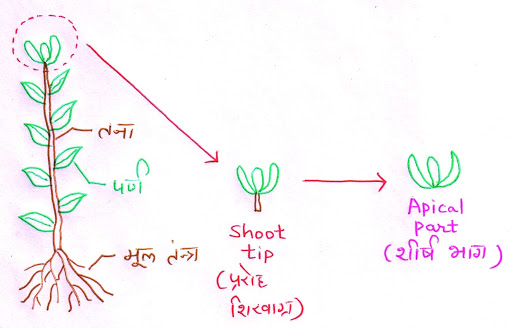 तना
पर्ण
मूल तंत्र
Shoot
tip
(प्ररोह
शिखाग्र)
Apical
part
(शीर्ष भाग)